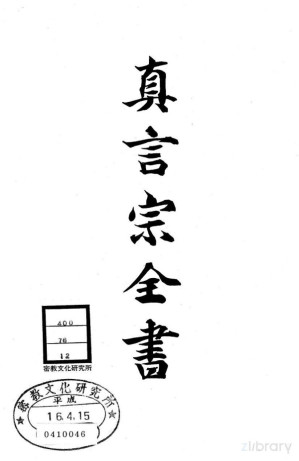 真言宗全書
400
76
12
密教文化研究所
密教文化研究所
平成
16.4.15
0410046
zlibrary